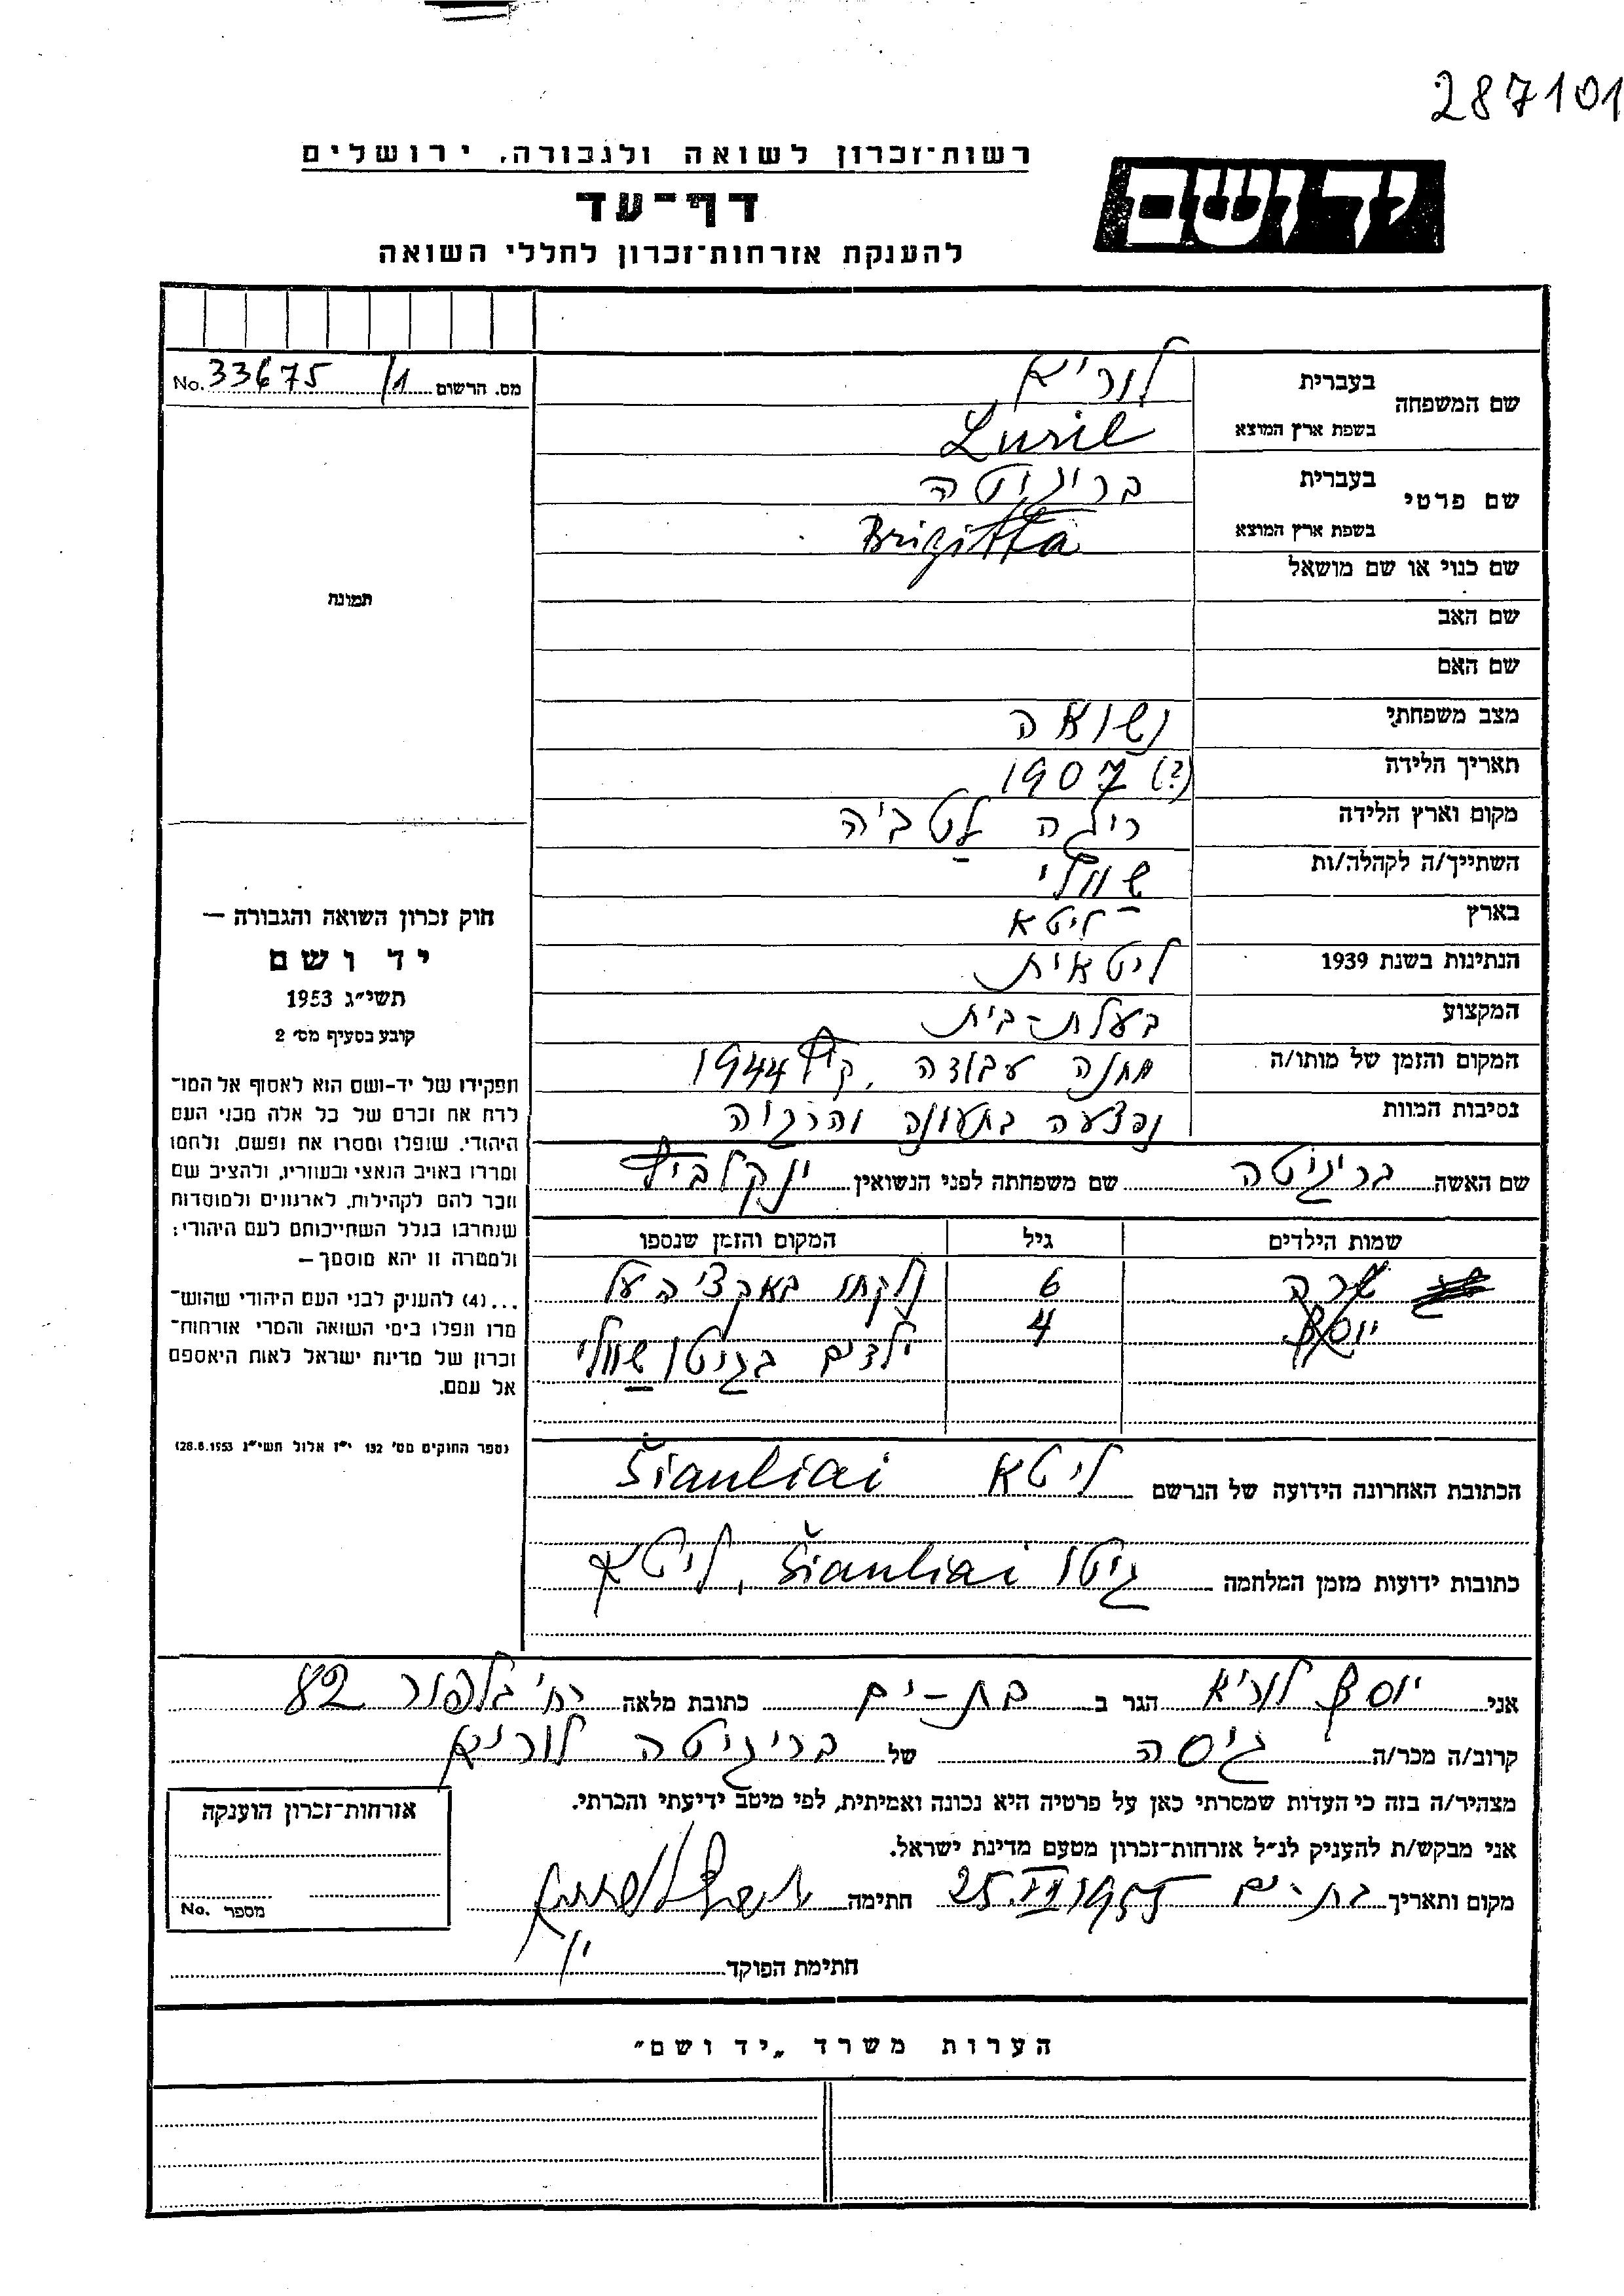 287101
רשות־זכרון לשואה ולגבורה, ירושלים
יד ושם
דף־עד
להענקת אזרחות־זכרון לחללי השואה
מס. הרשום 33675/1 No.
שם המשפחה בעברית לוריא
בשפת ארץ המוצא Lurie
שם פרטי בעברית בריגיטה
בשפת ארץ המוצא Brigitta
שם כנוי או שם מושאל
שם האב
שם האם
מצב משפחתי נשואה
תאריך הלידה (?) 1907
מקום וארץ הלידה ריגה לטביה
השתייך/ה לקהלה/ות שוולי
בארץ ליטא
הנתינות בשנת 1939 ליטאית
המקצוע בעלת-בית
המקום והזמן של מותו/ה מחנה עבודה, קיץ 1944
נסיבות המוות נפצעה בתאונה והרגוה
תמונה
חוק זכרון השואה והגבורה —
יד ושם
תשי״ג 1953
קובע בסעיף מס׳ 2
תפקידו של יד-ושם הוא לאסוף אל המו־
לדת את זכרם של כל אלה מבני העם
היהודי, שנפלו ומסרו את נפשם, נלחמו
ומרדו באויב הנאצי ובעוזריו, ולהציב שם
וזכר להם לקהילות, לארגונים ולמוסדות
שנחרבו בגלל השתייכותם לעם היהודי;
ולמטרה זו יהא מוסמך —
...(4) להעניק לבני העם היהודי שהוש־
מדו ונפלו בימי השואה והמרי אזרחות־
זכרון של מדינת ישראל לאות היאספם
אל עמם.
(ספר החוקים מס׳ 132 י״ז אלול תשי״ג 28.8.1953)
שם האשה בריגיטה שם משפחתה לפני הנשואין ינקלביץ
שמות הילדים גיל המקום והזמן שנספו
שרה 6 נלקחו באקציה על
יוסף 4 ילדים בגיטו שוולי
הכתובת האחרונה הידועה של הנרשם ליטא Šiauliai
כתובות ידועות מזמן המלחמה גיטו Šiauliai, ליטא
אני יוסף לוריא הגר ב בת-ים כתובת מלאה רח׳ בלפור 82
קרוב/ה מכר/ה גיסה של בריגיטה לוריא
מצהיר/ה בזה כי העדות שמסרתי כאן על פרטיה היא נכונה ואמיתית, לפי מיטב ידיעתי והכרתי.
אני מבקש/ת להעניק לנ״ל אזרחות־זכרון מטעם מדינת ישראל.
מקום ותאריך בת-ים 1955 חתימה
חתימת הפוקד
אזרחות־זכרון הוענקה
מספר No.
הערות משרד „יד ושם״